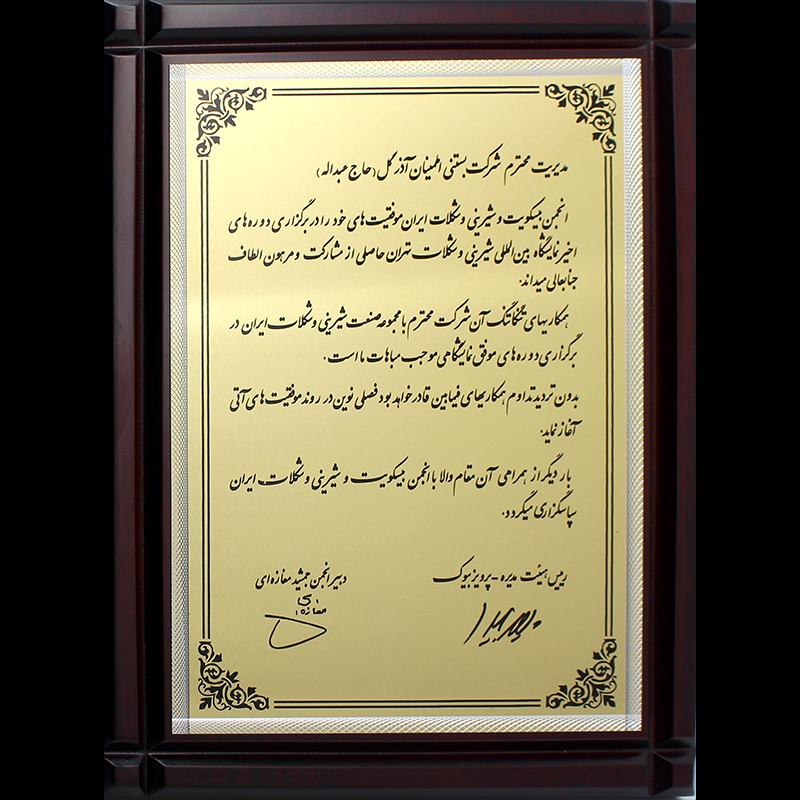 مدیریت محترم شرکت بستنی اطمینان آذر گل (حاج عبداله)
انجمن بیسکویت و شیرینی و شکلات ایران موفقیت های خود را در برگزاری دوره های
اخیر نمایشگاه بین المللی شیرینی و شکلات تهران حاصلی از مشارکت و مرهون الطاف
جنابعالی میداند.
همکاریهای تنگاتنگ آن شرکت محترم با مجموعه صنعت شیرینی و شکلات ایران در
برگزاری دوره های موفق نمایشگاهی موجب مباهات ما است.
بدون تردید تداوم همکاریهای فیمابین قادر خواهد بود فصلی نوین در روند موفقیت های آتی
آغاز نماید.
بار دیگر از همراهی آن مقام والا با انجمن بیسکویت و شیرینی و شکلات ایران
سپاسگزاری میگردد.
رییس هیئت مدیره - پرویز بیوک
دبیر انجمن جمشید مغازه ای